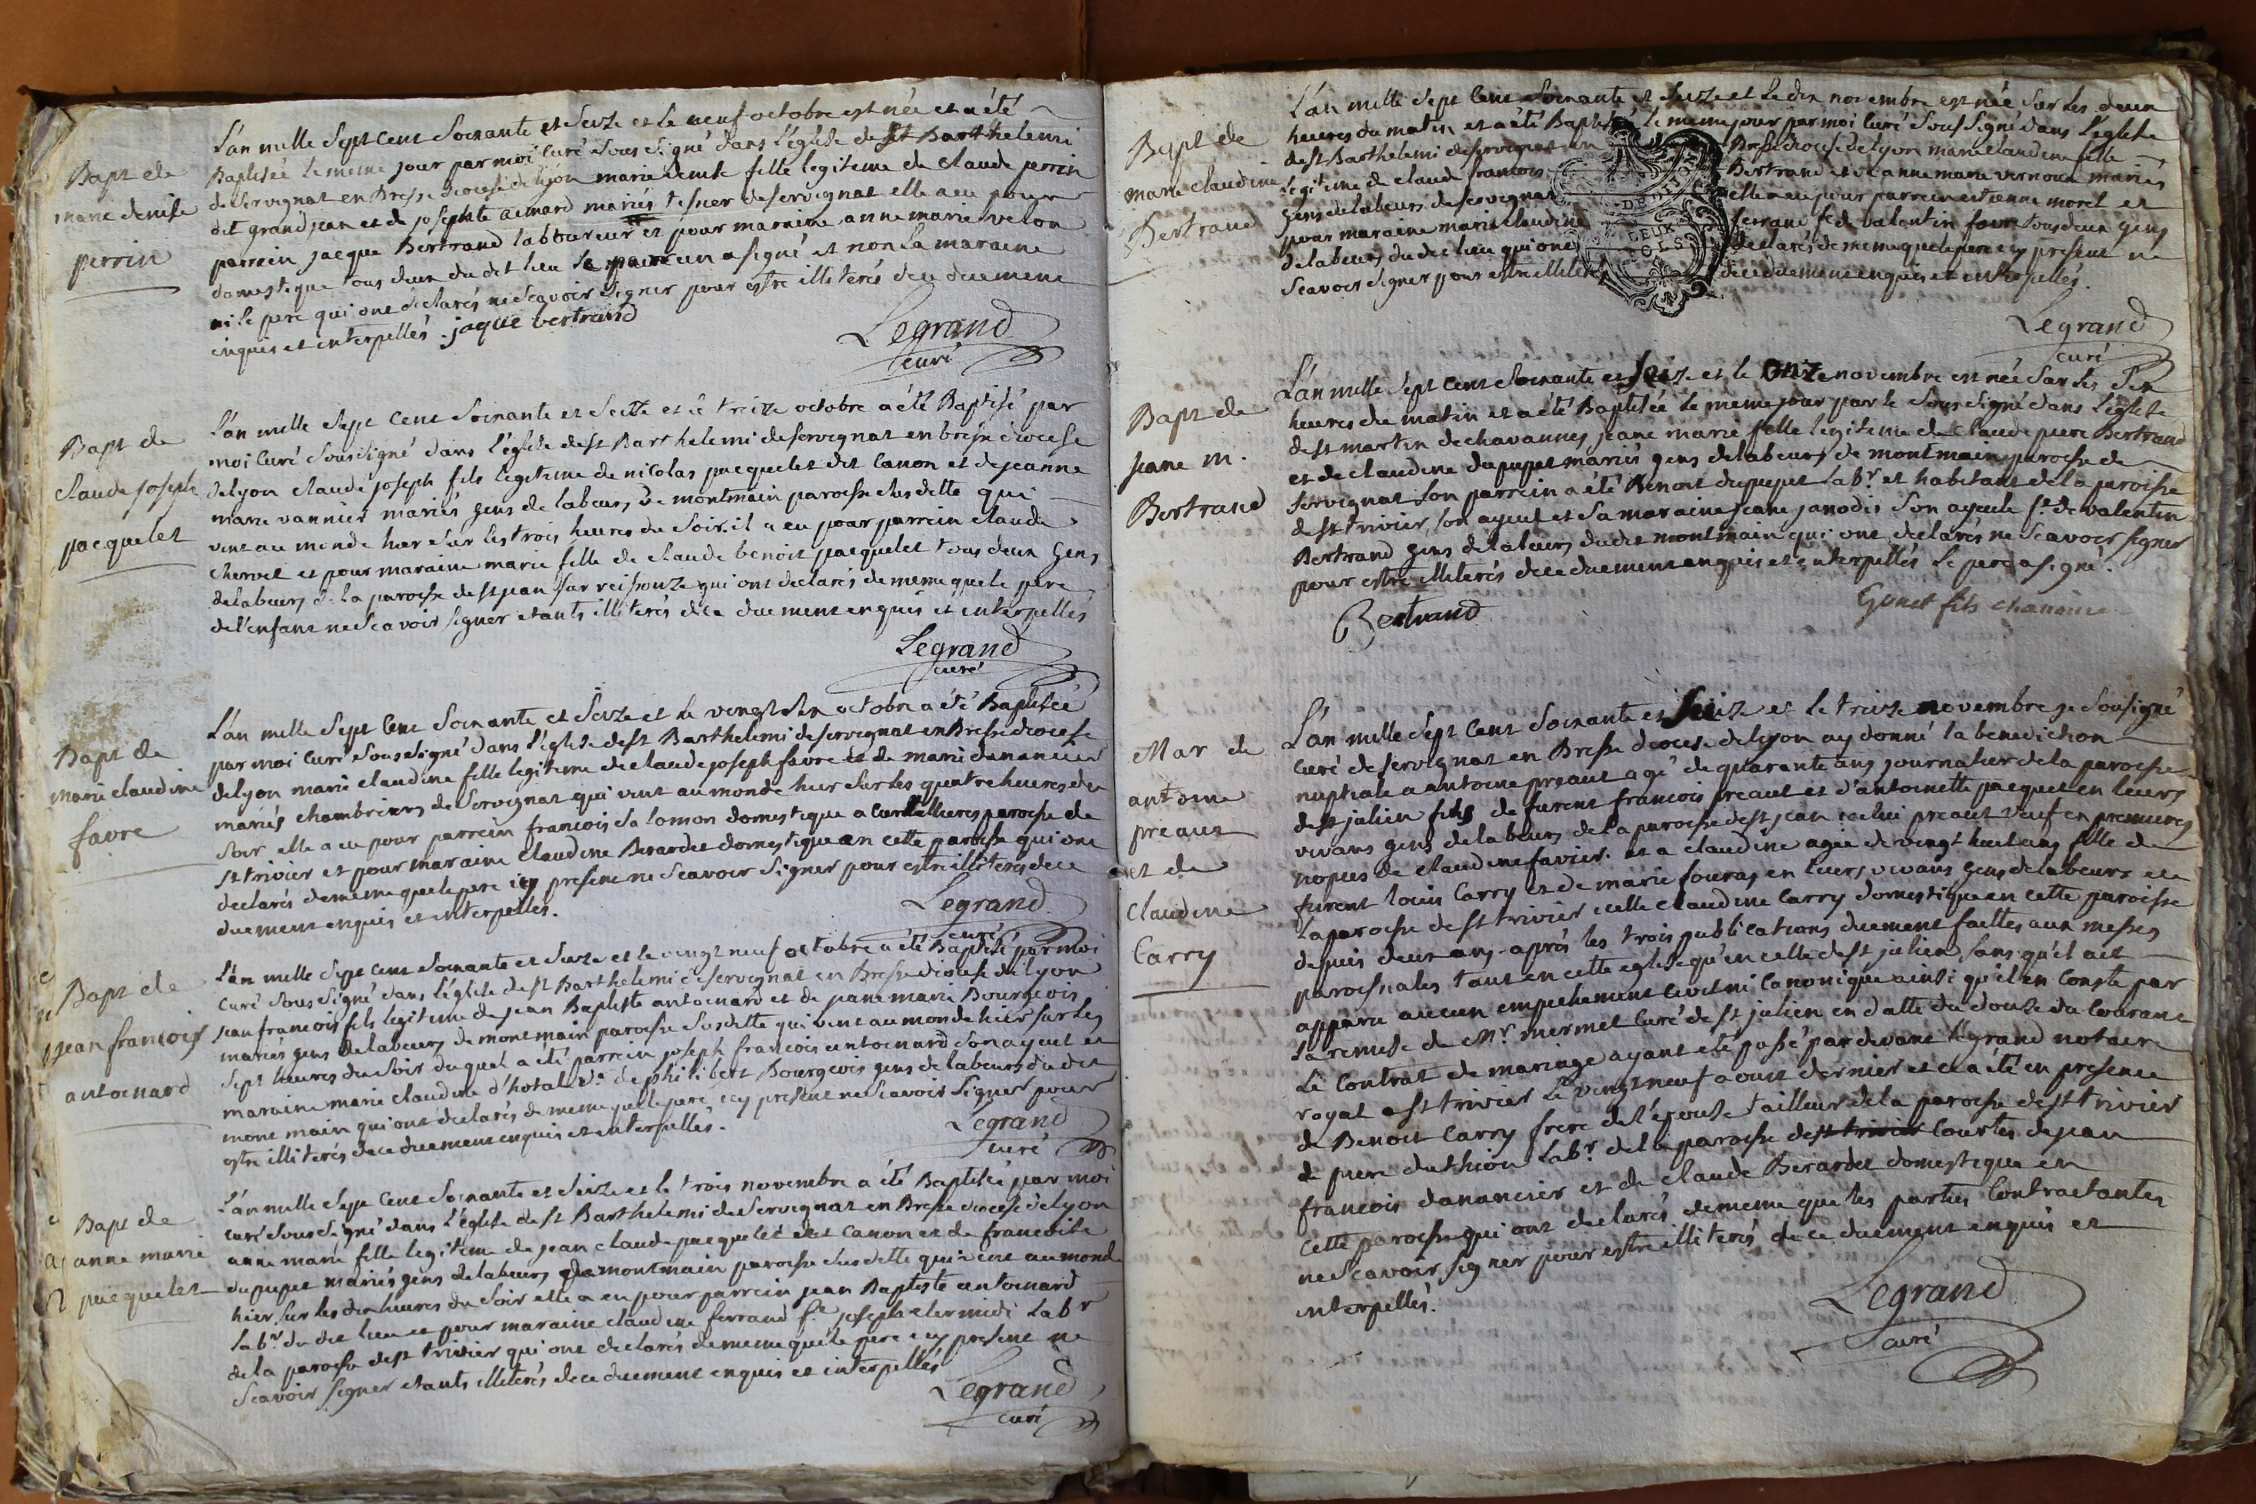 Bapt de
marie denise
perrin
L'an mille Sept Cent Soixante et Seize et le neuf octobre est née et a été
Baptisée le meme jour par moi Curé Sous Signé dans l'église de St Barthelemi
de Servignat en Bresse diocese de lyon marie denise fille legitime de Claude perrin
dit grand jean et de josephte aimard mariés de Servignat elle a eu pour
parrein jacque Bertrand laboureur et pour maraine anne marie velon
domestique tous deux du dit lieu le parrein a signé et non la maraine
ni le pere qui ont declarés ne Scavoir Signer pour estre illiterés de ce duement
enquis et interpellés. jaque bertrand
Legrand
curé
Bapt de
claude joseph
pacquelet
L'an mille Sept Cent Soixante et Seize et le treize octobre a été Baptisé par
moi Curé Soussigné dans l'église de St Barthelemi de Servignat en bresse diocese
de lyon claude joseph fils legitime de nicolas pacquelet dit Canon et de jeanne
marie vannier mariés gens de labeurs de montmain paroisse Susdette qui
vint au monde hier Sur les trois heures du Soir. il a eu pour parrein claude
chervet et pour maraine marie fille de claude benoit pacquelet tous deux Gens
de labeurs de la paroisse de St jean Sur reissouze qui ont declarés de meme que le pere
de l'enfant ne Scavoir Signer etants illiterés de ce duement enquis et interpellés
Legrand
curé
Bapt de
marie claudine
favre
L'an mille Sept Cent Soixante et Seize et le vingt Six octobre a été Baptisée
par moi Curé Sous Signé dans l'église de St Barthelemi de Servignat en Bresse diocese
de lyon marie claudine fille legitime de claude joseph favre et de marie danancier
mariés chambriers de Servignat qui vint au monde hier Sur les quatre heures du
Soir elle a eu pour parrein francois Salomon domestique a Curtalheres paroisse de
St trivier et pour maraine Claudine Berardet domestique en cette paroisse qui ont
declarés de meme que le pere icy present ne Scavoir Signer pour estre illiterés de ce
duement enquis et interpellés.
Legrand
curé
Bapt de
jean francois
antoinard
L'an mille Sept Cent Soixante et Seize et le vingt neuf octobre a été Baptisé par moi
Curé Sous Signé dans l'église de St Barthelemi de Servignat en Bresse diocese de lyon
jean francois fils legitime de jean Baptiste antoinard et de jeane marie Bourgeois
mariés gens de labeurs de montmain paroisse Susdette qui vint au monde hier Sur les
Sept heures du Soir duquel a été parrein joseph francois antoinard Son ayeul et
maraine marie claudine d'hotal de philibert Bourgeois gens de labeurs du dit
mont main qui ont declarés de meme que le pere icy present ne Scavoir Signer pour
estre illiterés de ce duement enquis et interpellés.
Legrand
curé
Bapt de
anne marie
pacquelet
L'an mille Sept Cent Soixante et Seize et le trois novembre a été Baptisée par moi
Curé Sous Signé dans l'église de St Barthelemi de Servignat en Bresse diocese de lyon
anne marie fille legitime de jean claude pacquelet dit Canon et de francoise
dupupet mariés gens de labeurs de montmain paroisse Susdette qui vint au monde
hier Sur les dix heures du Soir elle a eu pour parrein jean Baptiste antoinard
labr. du dit lieu et pour maraine claudine ferrand fe. joseph clermidi labr
de la paroisse de St trivier qui ont declarés de meme que le pere icy present ne
Scavoir Signer etants illiterés de ce duement enquis et interpellés
Legrand
curé
Bapt de
marie claudine
Bertrand
L'an mille Sept Cent Soixante et Seize et le dix novembre est née Sur les deux
heures du matin et a été Baptisée le meme jour par moi Curé Sous Signé dans l'église
de St Barthelemi de Servignat en Bresse diocese de lyon marie claudine fille
legitime de claude francois Bertrand et de anne marie vernoux mariés
gens de labeurs de Servignat elle a eu pour parrein estienne morel et
pour maraine marie claudine ferrand fe. de valentin favre tous deux gens
de labeurs du dit lieu qui ont declarés de meme que le pere icy present ne
Scavoir Signer pour estre illiterés de ce duement enquis et interpellés.
Legrand
curé
Bapt de
jeane m.
Bertrand
L'an mille Sept Cent Soixante et Seize et le Onze novembre est née Sur les Six
heures du matin et a été Baptisée le meme jour par le Sous Signé dans l'église
de St martin de chavannes jeane marie fille legitime de Claude piere Bertrand
et de claudine dupupet mariés gens de labeurs de montmain paroisse de
Servignat Son parrein a été Benoit dupupet labr. et habitant de la paroisse
de St trivier, Son ayeul et Sa maraine jeane janodis Son ayeule fe. de valentin
Bertrand gens de labeurs du dit montmain qui ont declarés ne Scavoir Signer
pour estre illiterés de ce duement enquis et interpellés le pere a signé.
Bertrand
Gonet fils chanoine
Mar de
antoine
preaut
et de
Claudine
Carry
L'an mille Sept Cent Soixante et Seize et le treize novembre je Sousigné
Curé de Servignat en Bresse diocese de lyon ay donné la benediction
nuptiale a antoine preaut agé de quarante ans journalier de la paroisse
de St julien fils de furent francois preaut et d'antoinette pacquet en leurs
vivans gens de labeurs de la paroisse de St jean icelui preaut veuf en premieres
nopces de claudine favier. et a claudine agée de vingt huit ans fille de
furent louis Carry et de marie fouras en leurs vivans gens de labeurs de
la paroisse de St trivier icelle claudine Carry domestique en cette paroisse
depuis deux ans. après les trois publications duement faittes aux messes
paroissiales tant en cette eglise qu'en celle de St julien Sans qu'il ait
apparu aucun empechement Civil ni Canonique ainsi qu'il en Conste par
la remise de Mr. mermet Curé de St julien en datte du douze du Courant
Le Contrat de mariage ayant été passé par devant legrand notaire
royal a St trivier le vingt neuf aoust dernier et ce a été en presence
de Benoit Carry frere de l'épouse tailleur de la paroisse de St trivier
de piere duthion labr. de la paroisse de St trivier Courtes de jean
francois danancier et de Claude Berardet domestique en
cette paroisse qui ont declarés de meme que les parties Contractantes
ne Scavoir Signer pour estre illiterés de ce duement enquis et
interpellés.
Legrand
curé